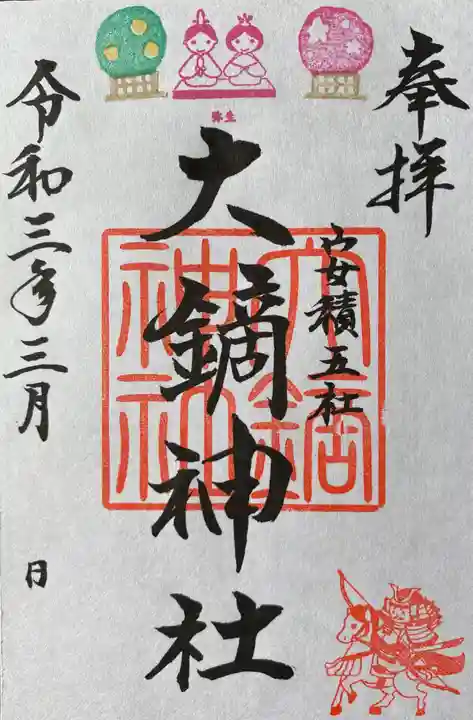 奉拝
安積五社
弥生
大鏑神社
大鏑
神社
令和三年三月
日